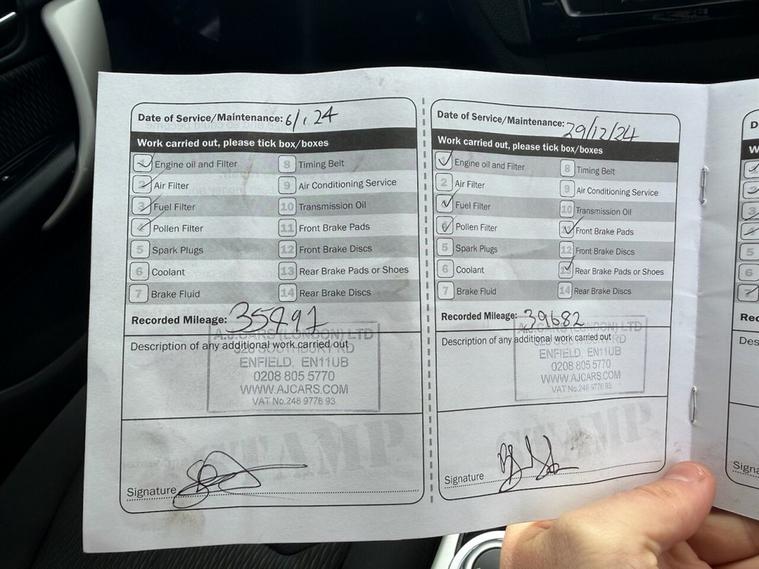 Date of Service/Maintenance: 6/1.24
Work carried out, please tick box/boxes
1 Engine oil and Filter
2 Air Filter
3 Fuel Filter
4 Pollen Filter
5 Spark Plugs
6 Coolant
7 Brake Fluid
8 Timing Belt
9 Air Conditioning Service
10 Transmission Oil
11 Front Brake Pads
12 Front Brake Discs
13 Rear Brake Pads or Shoes
14 Rear Brake Discs
Recorded Mileage: 35497
Description of any additional work carried out
A.J.CARS (LONDON) LTD
SOUTHBURY RD
ENFIELD, EN11UB
0208 805 5770
WWW.AJCARS.COM
VAT No.248 9776 93
STAMP
Signature
Date of Service/Maintenance: 29/12/24
Work carried out, please tick box/boxes
1 Engine oil and Filter
2 Air Filter
3 Fuel Filter
4 Pollen Filter
5 Spark Plugs
6 Coolant
7 Brake Fluid
8 Timing Belt
9 Air Conditioning Service
10 Transmission Oil
11 Front Brake Pads
12 Front Brake Discs
13 Rear Brake Pads or Shoes
14 Rear Brake Discs
Recorded Mileage: 39682
Description of any additional work carried out
A.J.CARS (LONDON) LTD
SOUTHBURY RD
ENFIELD, EN11UB
0208 805 5770
WWW.AJCARS.COM
VAT No.248 9776 93
STAMP
Signature
D
W
5
6
7
Rec
Des
Signa